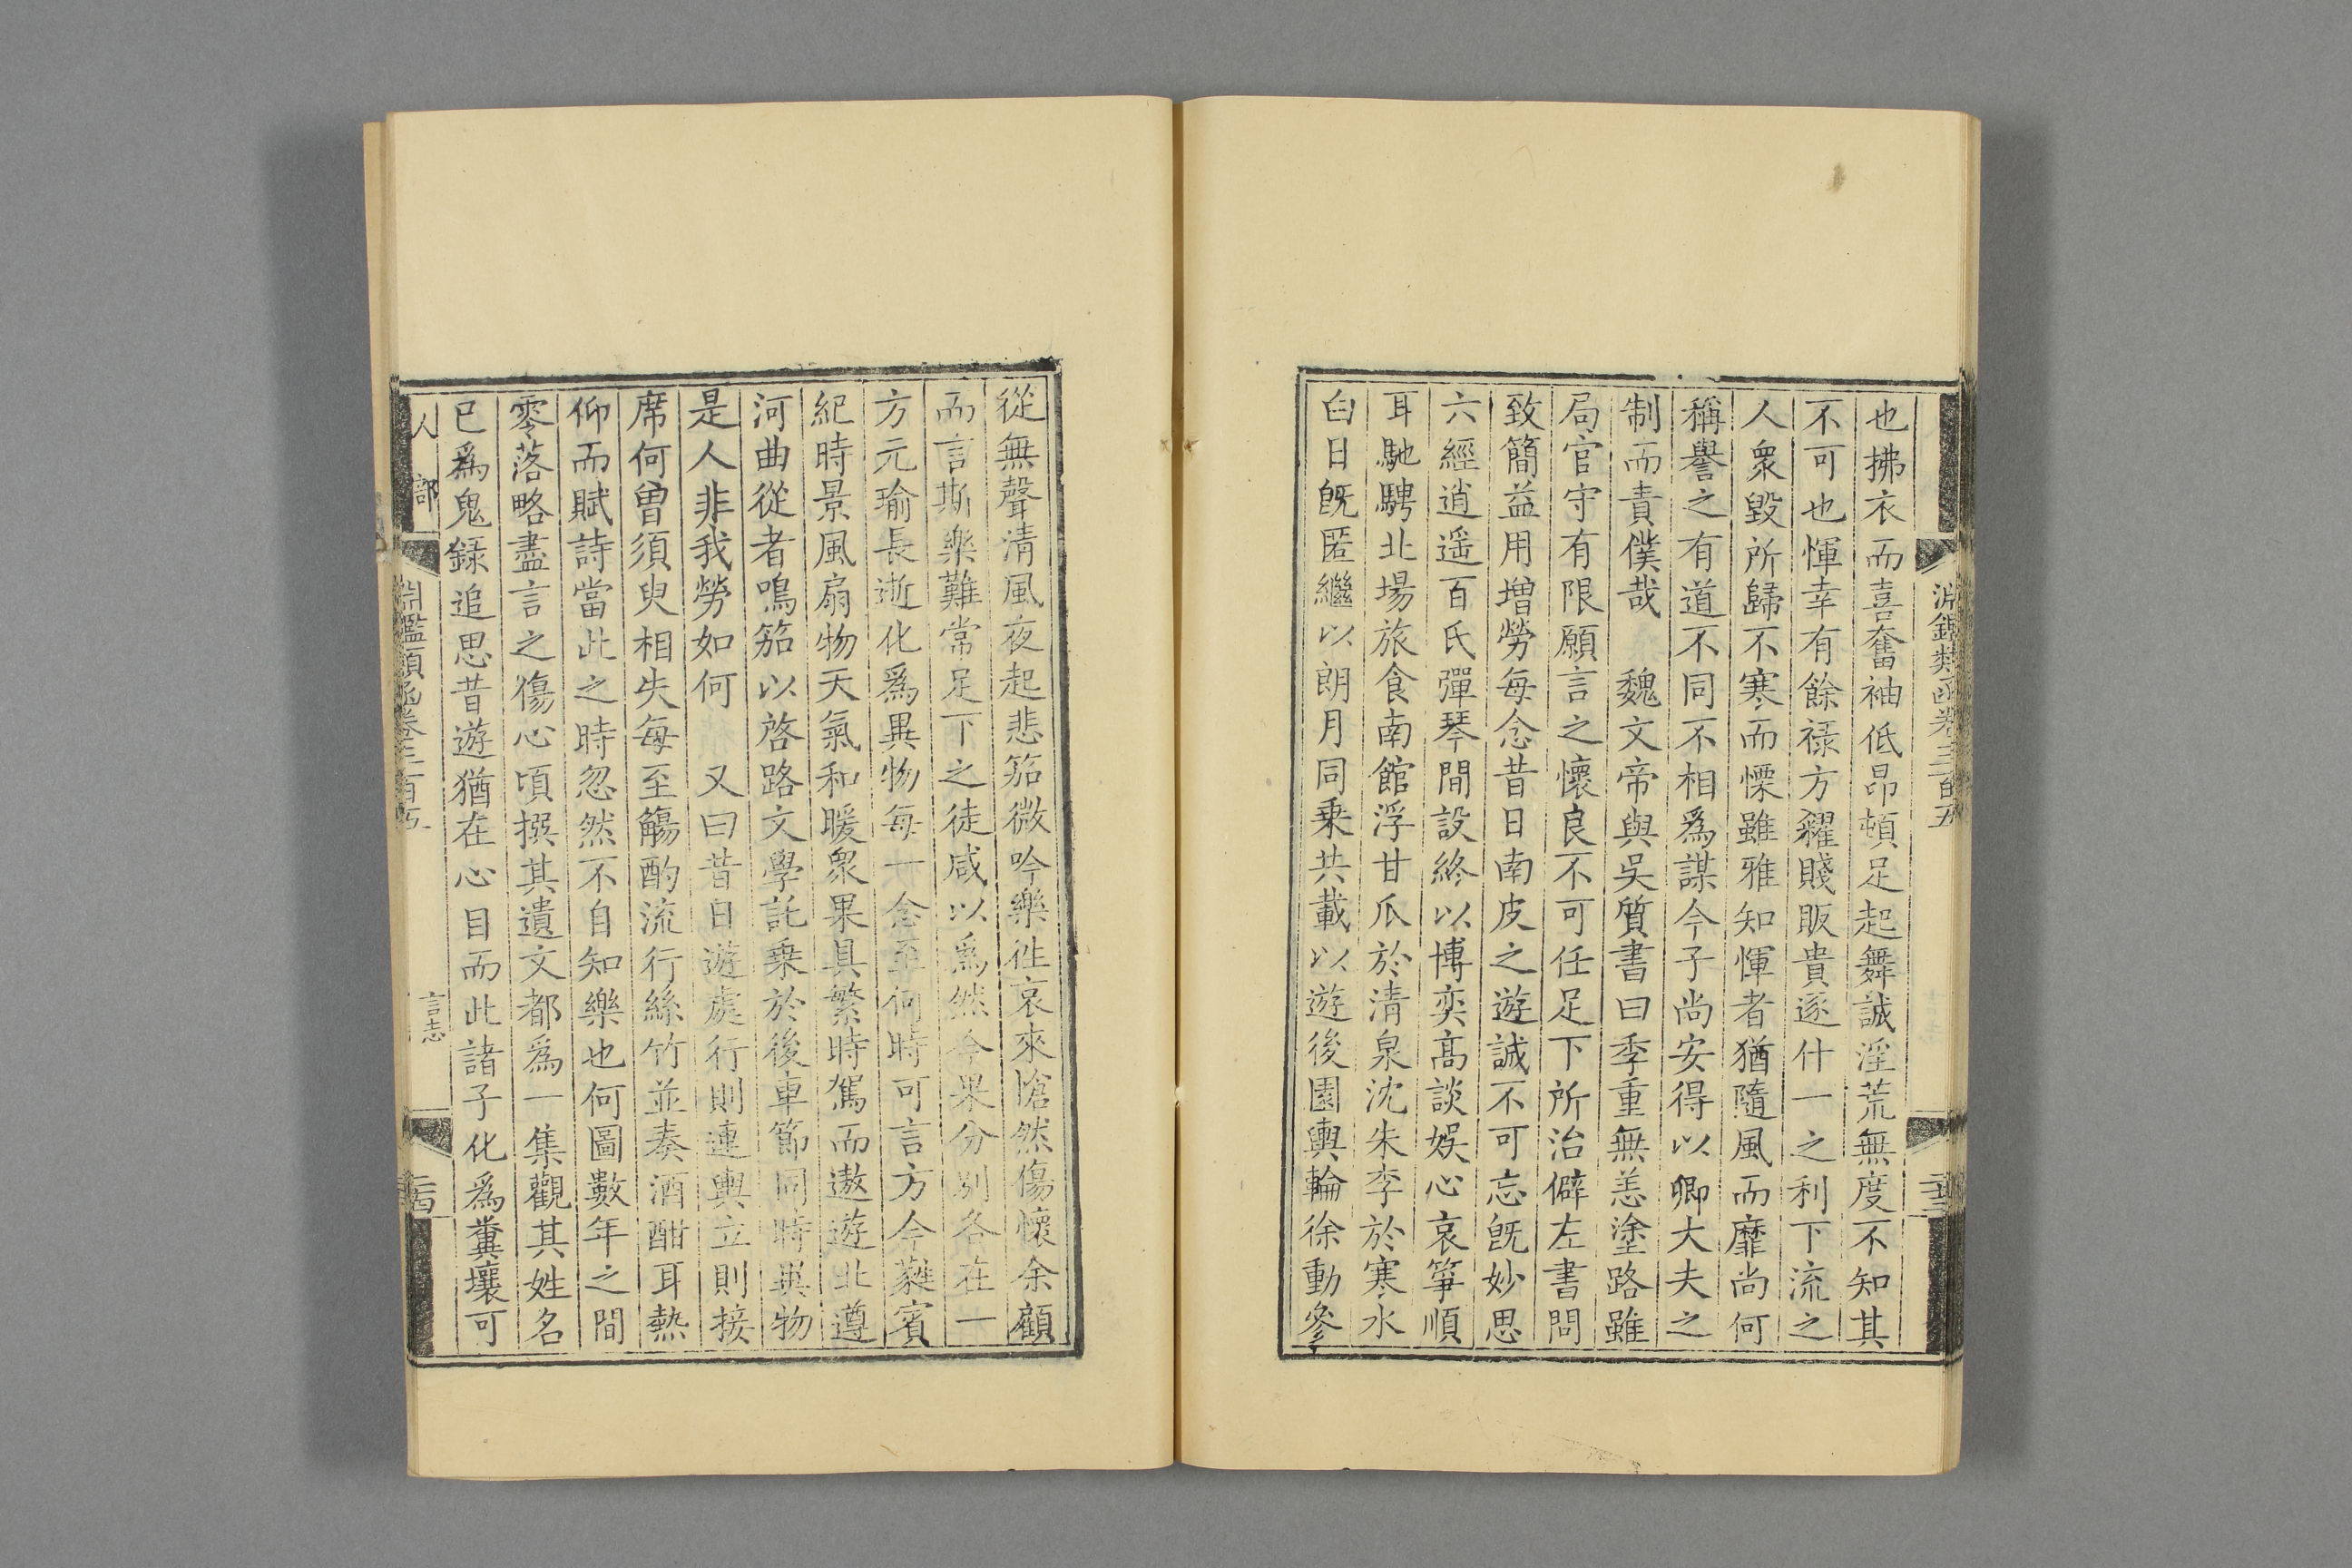 淵鑑類函卷三百五
二十三
也拂衣而喜奮袖低昂頓足起舞誠淫荒無度不知其
不可也惲幸有餘祿方糴賤販貴逐什一之利下流之
人衆毀所歸不寒而慄雖雅知惲者猶隨風而靡尚何
稱譽之有道不同不相爲謀今子尚安得以卿大夫之
制而責僕哉　魏文帝與吳質書曰季重無恙塗路雖
局官守有限願言之懷良不可任足下所治僻左書問
致簡益用增勞每念昔日南皮之遊誠不可忘旣妙思
六經逍遥百氏彈琴間設終以博奕髙談娱心哀箏順
耳馳騁北場旅食南館浮甘瓜於清泉沈朱李於寒水
白日旣匿繼以朗月同乗共載以遊後園輿輪徐動參
從無聲清風夜起悲笳微吟樂徃哀來愴然傷懷余顧
而言斯樂難常足下之徒咸以爲然今果分別各在一
方元瑜長逝化爲異物每一念至何時可言方今蕤賓
紀時景風扇物天氣和暖衆果具繁時駕而遨遊北遵
河曲從者鳴笳以啓路文學託乗於後車節同時異物
是人非我勞如何　又曰昔日遊處行則連輿立則接
席何曾須臾相失每至觴酌流行絲竹並奏酒酣耳熱
仰而賦詩當此之時忽然不自知樂也何圖數年之間
零落略盡言之傷心頃撰其遺文都爲一集觀其姓名
已爲鬼録追思昔遊猶在心目而此諸子化爲糞壤可
人部
淵鑑類函卷三百五
言志
二十四